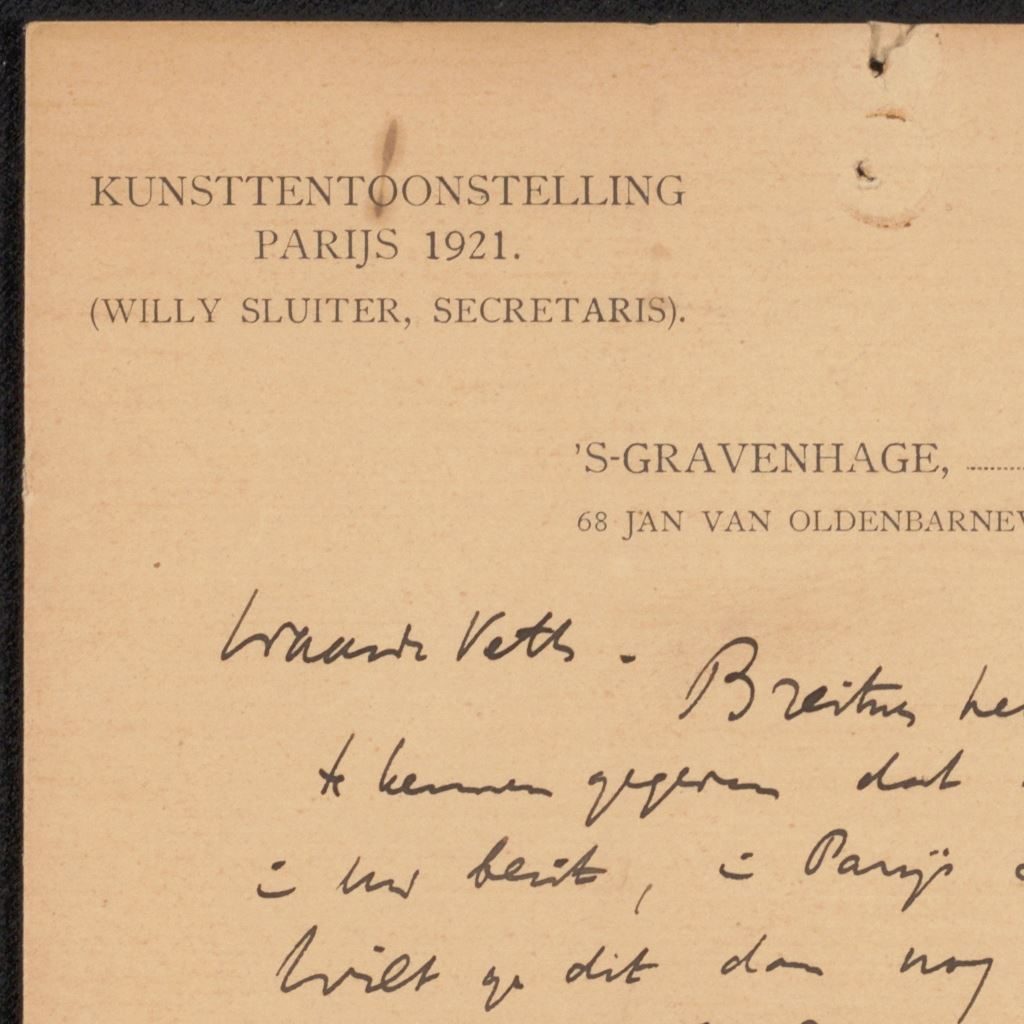 KUNSTTENTOONSTELLING
PARIJS 1921.
(WILLY SLUITER, SECRETARIS).
'S-GRAVENHAGE,
68 JAN VAN OLDENBARNEV
Waarde Veth.
Breitner he
te kennen gegeven dat
in uw bezit, in Parijs
Wilt ge dit dan nog